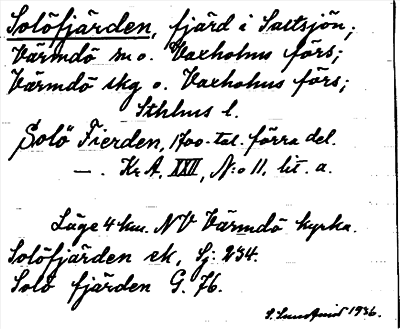 Solöfjärden, fjärd i Saltsjön;
Värmdö sn o. Vaxholms förs;
Värmdö skg o. Vaxholms förs;
Sthlms l.
Solö Fierden, 1700-tal. förra del.
— . Kr. A. XXII, N:o 11, lit. a.
Läge 4 km. NV Värmdö kyrka.
Solöfjärden ek, Sj. 234.
Solö fjärden G. 76.
1936.